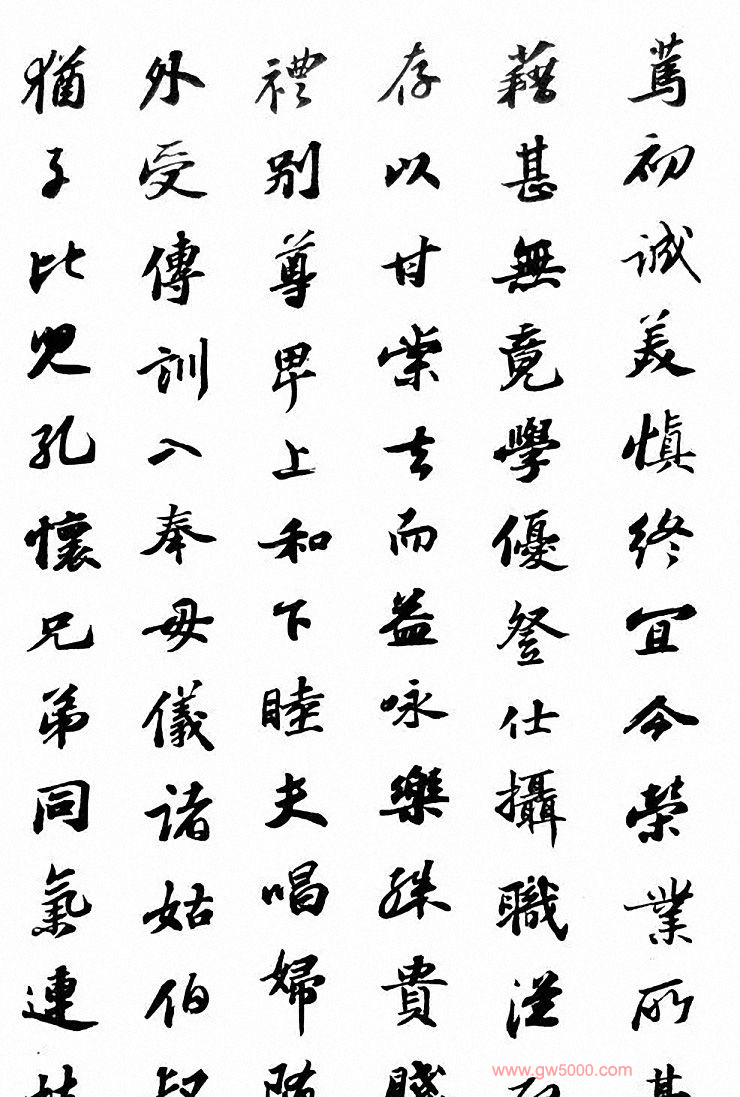 篤初誠美慎終宜令榮業所
藉甚無竟學優登仕攝職從
存以甘棠去而益咏樂殊貴
禮別尊卑上和下睦夫唱婦
外受傳訓入奉母儀諸姑伯
猶子比兒孔懷兄弟同氣連
www.gw5000.com